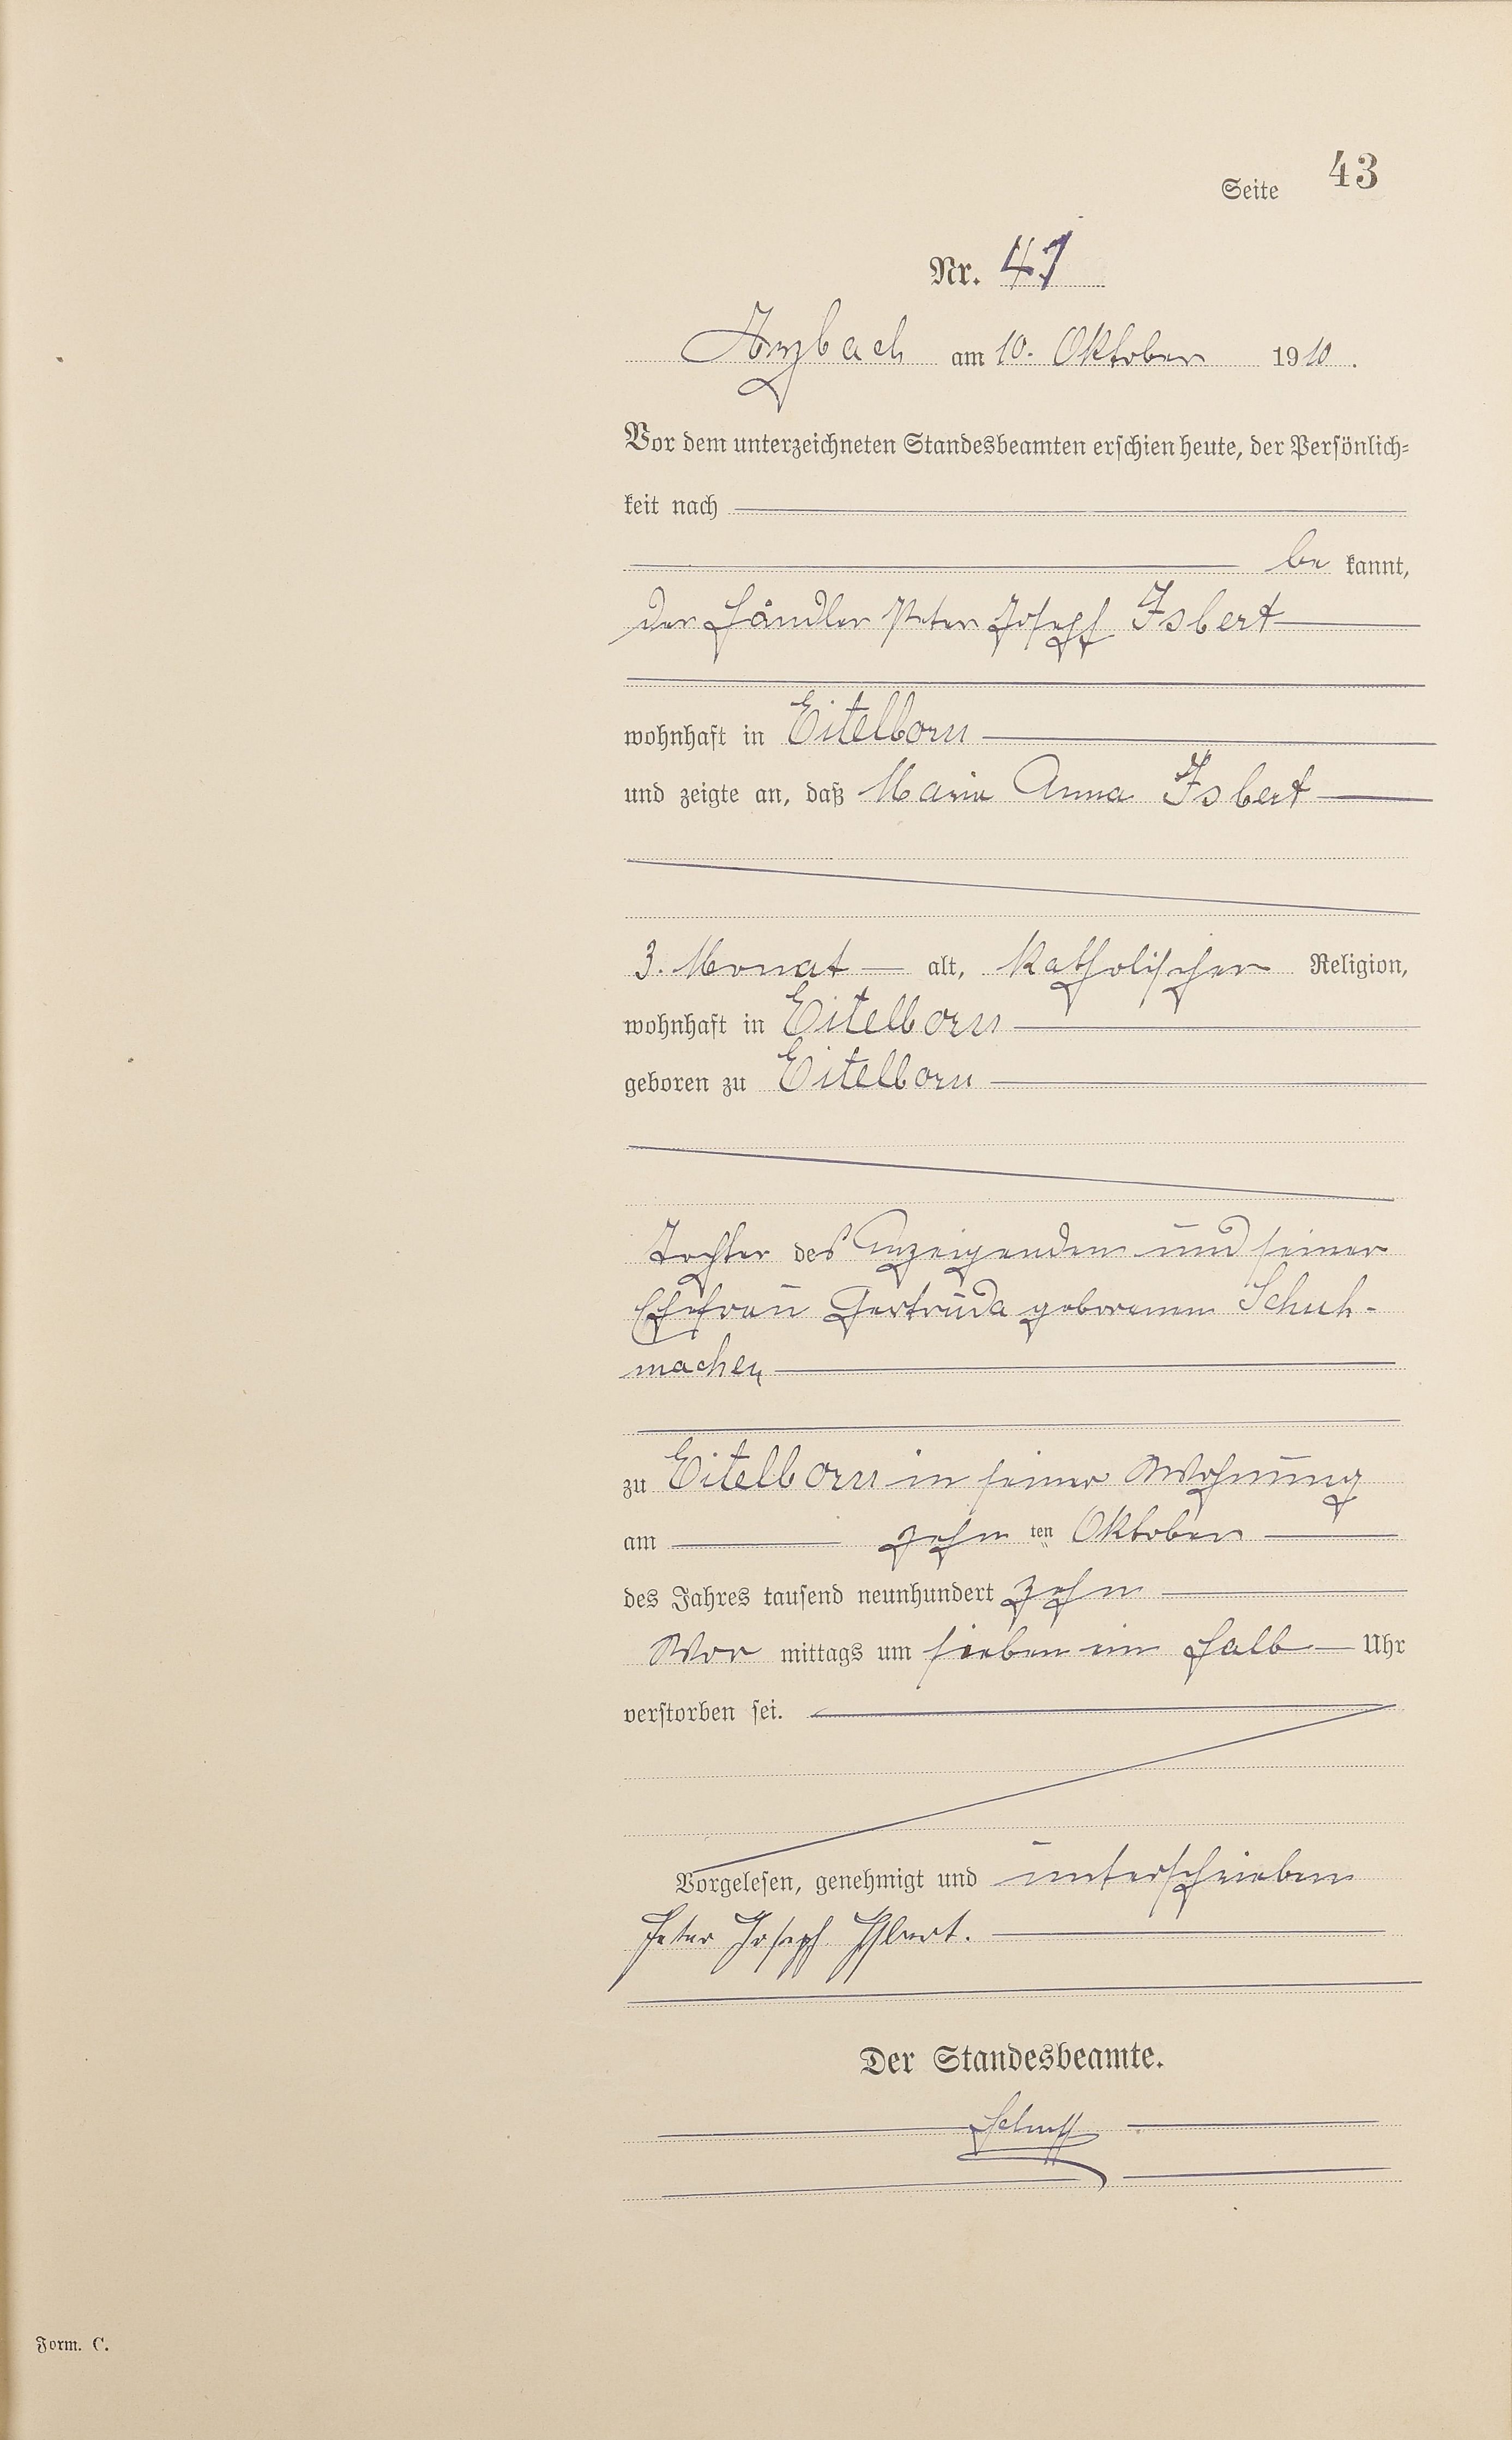 Seite 43
Nr. 41
Arzbach am 10. Oktober 1910.
Vor dem unterzeichneten Standesbeamten erschien heute, der Persönlich-
keit nach
be kannt,
der Händler Peter Joseph Isbert
wohnhaft in Eitelborn
und zeigte an, daß Maria Anna Isbert
3. Monat alt, katholischer Religion,
wohnhaft in Eitelborn
geboren zu Eitelborn
Tochter des Anzeigenden und seiner
Ehefrau Gertruda geborenen Schuh-
macher,
zu Eitelborn in seiner Wohnung
am zehn ten Oktober
des Jahres tausend neunhundert zehn
Vor mittags um sieben ein halb Uhr
verstorben sei.
Vorgelesen, genehmigt und unterschrieben
Peter Joseph Isbert.
Der Standesbeamte.
Form. C.